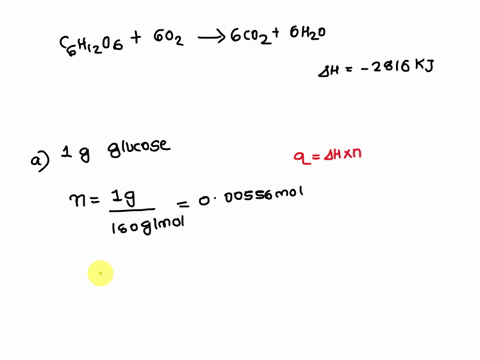 C6H12O6 + 6O2 → 6CO2 + 6H2O
ΔH = -2816 KJ
a) 1 g glucose
q = ΔH×n
n = 1g / 180 g/mol = 0.00556 mol